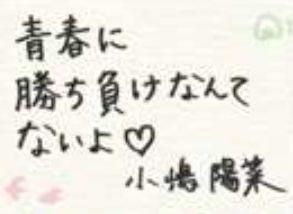 青春に
勝ち負けなんて
ないよ♡
小嶋陽菜